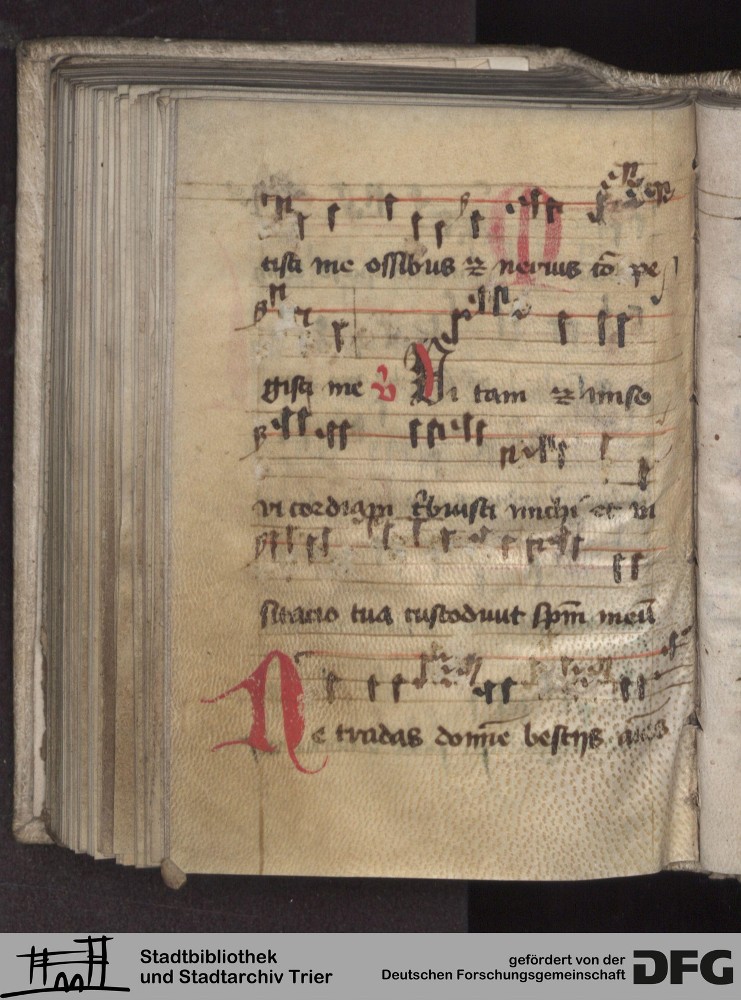 tisti me ossibus ⁊ neruis cō pe
gisti me v̄ Vi tam ⁊ mise
ricordiam t͛buisti michi et vi
sitacio tua custodiuit sp̄m meū
Ne tradas domīe bestijs
Stadtbibliothek
und Stadtarchiv Trier
gefördert von der
Deutschen Forschungsgemeinschaft
DFG